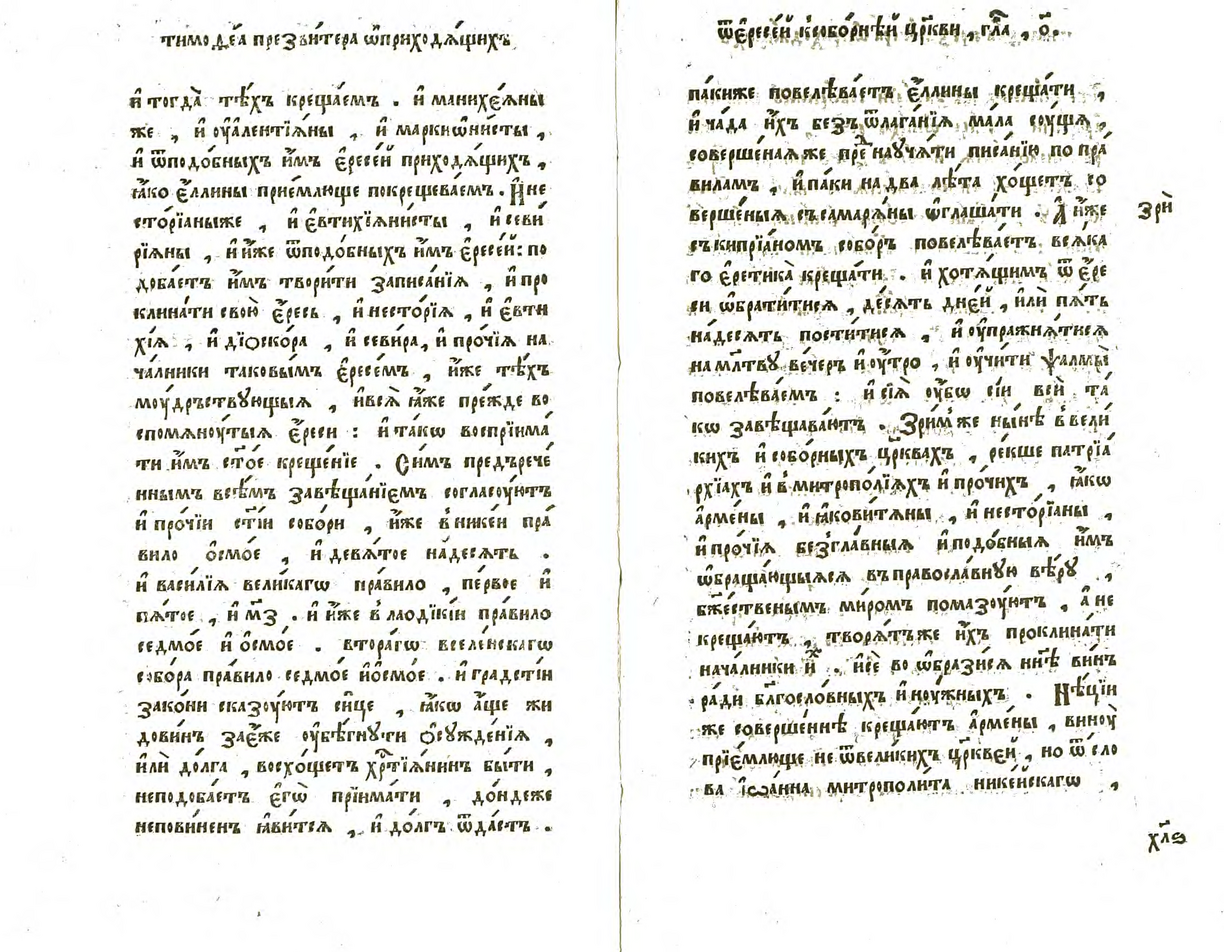 тимоѳе́а презви́тера ѡ҆приходѧ́щихъ
и҆ тогда̀ тѣ́хъ креща́емъ . и҆ манихе́ѧны
же , и҆ ᲂу҆але́нтїѧны , и҆ маркиѡ́нисты ,
и҆ ѿподо́бныхъ и҆̀мъ є҆ресе́й приходѧ́щихъ ,
ꙗ҆́ко є҆́ллины прие́млюще покрещева́емъ . И҆ не
сторїаны́же , и҆ є҆втихїѧни́сты , и҆ севи
рїѧны , и҆ и҆́же ѿподо́бныхъ и҆̀мъ є҆ресе́й : по
доба́етъ и҆̀мъ твори́ти записа́нїѧ , и҆ про
клина́ти свою̀ є҆́ресь , и҆ несто́рїѧ , и҆ є҆вти
хїѧ , и҆ дїоско́ра , и҆ севи́ра , и҆ про́чїѧ на
ча́лники таковы́мъ є҆ресе́мъ , и҆́же тѣ́хъ
моу́дрьствꙋющыѧ , и҆всѧ̀ ꙗ҆́же пре́жде во
спомѧноу́тыѧ є҆́реси : и҆ та́кѡ воспрїима́
ти и҆̀мъ ст҃о́е креще́нїе . Си́мъ предърече́
ннымъ всѣ́мъ завѣща́нїемъ согласоу́ютъ
и҆ про́чїи ст҃і́и собо́ри , и҆́же в̾нике́и пра́
вило ѻ҆смо́е , и҆ девѧ́тое на́десѧть .
и҆ васи́лїѧ вели́кагѡ пра́вило , пе́рвое и҆
пѧ́тое , и҆ м҃з . и҆ и҆́же в̾ лаоді́кїи пра́вило
седмо́е и҆ ѻ҆смо́е . втора́гѡ вселе́нскагѡ
собо́ра пра́вило седмо́е и҆ѻ҆смо́е . и҆ гра́дстїи
зако́ни сказоу́ютъ си́це , ꙗ҆́кѡ а҆́ще жи
дови́нъ зае́же ᲂу҆бѣ́гнꙋти ѻ҆сꙋжде́нїѧ ,
и҆лѝ до́лга , восхо́щетъ хрⷭ҇тїѧ́нинъ бы́ти ,
неподоба́етъ є҆гѡ̀ прїима́ти , до́ндеже
непови́ненъ ꙗ҆ви́тсѧ , и҆ до́лгъ ѿда́стъ .
ѿє҆ресе́й ксобо́рнѣй цр҃кви , гла̀ , о҃ .
па́киже повелѣва́етъ є҆́ллины креща́ти ,
и҆ ча́да и҆́хъ безъ ѿлага́нїѧ ма́ла соу́щѧ ,
соверше́наѧже преⷣ наꙋчѧ́ти писа́нїю по пра́
виламъ , и҆ па́ки на два̀ лѣ́та хо́щетъ со
верше́ныѧ съ самарѧ́ны ѡ҆глаша́ти . А҆ и҆́же
съ кипрїа́номъ собо́ръ повелѣва́етъ всѧ́ка
го є҆ретика̀ креща́ти . и҆ хотѧ́щимъ ѿ є҆́ре
си ѡ҆брати́тисѧ , де́сѧть дне́й , и҆лѝ пѧ́ть
на́десѧть пости́тисѧ , и҆ ᲂу҆пражнѧ́тисѧ
на мл҃твꙋ ве́черъ и҆ ᲂу҆́тро , и҆ ᲂу҆чи́ти ѱалмы̀
повелѣва́емъ : и҆ сїѧ̀ ᲂу҆́бѡ сі́и всѝ та́
кѡ завѣщава́ютъ . Зри́м̾же ны́нѣ в̾ вели́
кихъ и҆ собо́рныхъ цр҃квахъ , ре́кше патрїа́
рхїахъ и҆ в̾ митропо́лїѧхъ и҆ про́чихъ , ꙗ҆́кѡ
а҆рме́ны , и҆ ꙗ҆ковитѧ́ны , и҆ несторі́аны ,
и҆ про́чїѧ без̾гла́вныѧ и҆ подо́бныѧ и҆̀мъ
ѡ҆браща́ющыѧсѧ въ правосла́внꙋю вѣ́рꙋ ,
бж҃ественымъ ми́ромъ помазоу́ютъ , а҆ не
креща́ютъ , творѧ́тъже и҆́хъ проклина́ти
нача́лники и҆ⷯ . и҆сѐ во ѡ҆бра́зисѧ нн҃ѣ ви́нъ
ра́ди бл҃госло́вныхъ и҆ ноу́жныхъ . Нѣ́цїи
же соверше́ннѣ креща́ютъ а҆рме́ны , виноу̀
прїе́млюще не ѿвели́кихъ цр҃кве́й , но ѿ сло
ва і҆ѡа́нна митрополи́та нике́йскагѡ ,
зрѝ
хл҃ѕ